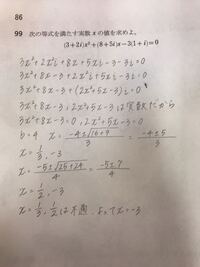 86
99 次の等式を満たす実数 x の値を求めよ。
(3+2i)x²+(8+5i)x−3(1+i)=0
3x²+2x²i+8x+5xi−3−3i=0
3x²+8x−3+2x²i+5xi−3i=0
3x²+8x−3+(2x²+5x−3)i=0
3x²+8x−3, 2x²+5x−3は実数だから
3x²+8x−3=0, 2x²+5x−3=0
b=4 x=\frac{-4±\sqrt{16+9}}{3}=\frac{-4±5}{3}
x=\frac{1}{3}, −3
x=\frac{-5±\sqrt{25+24}}{4}=\frac{-5±7}{4}
x=\frac{1}{2}, −3
x=\frac{1}{3}, \frac{1}{2}は不適 よってx=−3